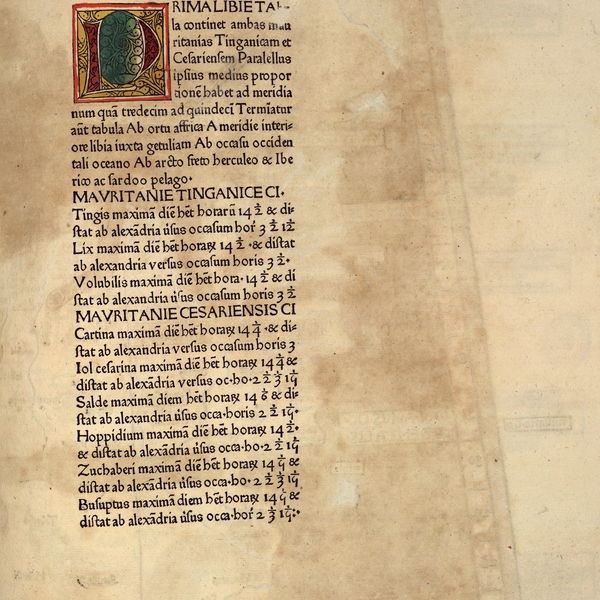 PRIMA LIBIE TA
la continet ambas mau
ritanias Tinganicam et
Cesariensem Paralellus
ipsius medius propor
tionē habet ad meridia
num quā tredecim ad quindecī Termīatur
aūt tabula Ab ortu affrica A meridie interi⸗
ore libia iuxta getuliam Ab occasu occiden
tali oceano Ab arcto freto herculeo & Ibe
rico ac sardoo pelago·
MAVRITANIE TINGANICE CI·
Tingis maximā diē hēt horarū 14 ½ & di⸗
stat ab alexādria ūsus occasum hor 3 ½ 1/12
Lix maximā diē hēt horaꝝ 14 ½ ·& distat
ab alexandria versus occasum horis 3 ½·
Volubilis maximā diē hēt hora· 14 ½ & di
stat ab alexandria ūsus occasum horis 3 ½
MAVRITANIE CESARIENSIS CI
Cartina maximā diē hēt horaꝝ 14 ¼ ·& di⸗
stat ab alexandria versus occasum horis 3
Iol cesarina maximā diē hēt horaꝝ 14 ¼ &
distat ab alexādria versus oc·ho·2 ½ ⅓
Salde maximā diem hēt horaꝝ 14 &
stat ab alexandria ūsus occa·horis 2 ½
Hoppidium maximā diē hēt horaꝝ 14
& distat ab alexādria ūsus occa·ho·2 ½
Zuchaberi maximā diē hēt horaꝝ 14 &
distat ab alexādria ūsus occa·ho· 2 ½ ⅓
Busuptus maximā diem hēt horaꝝ 14 &
distat ab alexādria ūsus occa·hor 2 ⅓